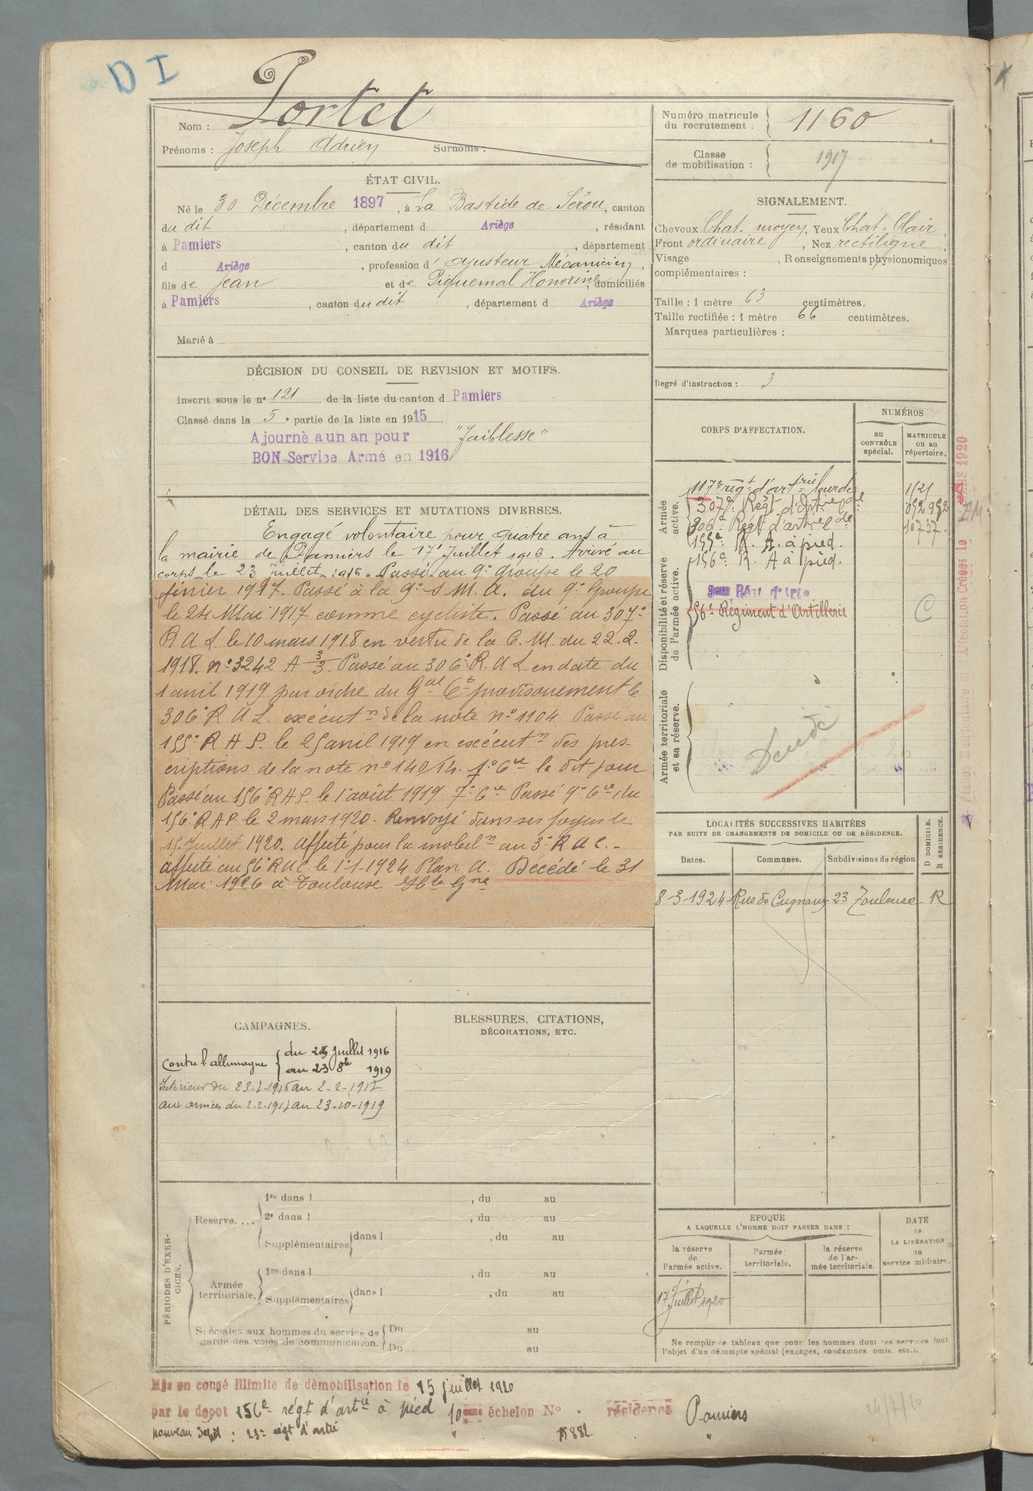 D I
Portet
Nom :
Prénoms : Joseph Adrien Surnoms :
ÉTAT CIVIL.
Né le 30 Décembre 1897, à La Bastide de Sérou, canton
du dit, département d Ariège, résidant
à Pamiers, canton du dit, département
d Ariège, profession d'ajusteur Mécanicien,
fils de Jean et de Piquemal Honorine, domiciliés
à Pamiers, canton du dit, département d Ariège
Marié à
DÉCISION DU CONSEIL DE REVISION ET MOTIFS.
Inscrit sous le n° 121 de la liste du canton d Pamiers
Classé dans la 5e partie de la liste en 1915.
Ajourné a un an pour "Faiblesse"
BON Service Armé en 1916
DÉTAIL DES SERVICES ET MUTATIONS DIVERSES.
Engagé volontaire pour quatre ans à
la mairie de Pamiers le 17 Juillet 1916. Arrivé au
corps le 23 Juillet 1916. Passé au 9e Groupe le 20
février 1917. Passé à la 9e S.M.A. du 9e Groupe
le 24 Mai 1917 comme cycliste. Passé au 307e
R A L le 10 mars 1918 en vertu de la C. M. du 22-2-
1918. n° 3242 A 3/3. Passé au 306e R. A L. en date du
1 avril 1919 par ordre du Gal Ct provisoirement le
306e R A L. exécutn de la note n° 1104. Passé au
155e R A P. le 25 avril 1919 en exécutn des pres-
criptions de la note n° 14054. 1e Cie le dit jour
Passé au 156e R A P. le 1 août 1919 7e Cie Passé 9e Cie du
156e R A P. le 2 mars 1920. Renvoyé dans ses foyers le
15 Juillet 1920. Affecté pour la mobiln au 3e R A C.-
affecté au 56e R A C. le 1-1-1924 Plan A. Décédé le 31
Mai 1926 à Toulouse Hte Gne
CAMPAGNES.
Contre l'allemagne { du 23 Juillet 1916
au 23 8b 1919
Intérieur du 23-7-1916 au 2-2-1917
aux armées du 2-2-1917 au 23-10-1919
BLESSURES, CITATIONS,
DÉCORATIONS, ETC.
PÉRIODES D'EXER-
CICES.
Réserve.... 1re dans l , du au
2e dans l , du au
Supplémentaires dans l , du au
Armée
territoriale. 1re dans l , du au
Supplémentaires dans l , du au
Spéciales aux hommes du service de
garde des voies de communication. Du au
Du au
Numéro matricule
du recrutement : 1160
Classe
de mobilisation : 1917
SIGNALEMENT.
Cheveux Chat. moyen, Yeux Chat. Clair,
Front ordinaire, Nez rectiligne,
Visage , Renseignements physionomiques
complémentaires :
Taille : 1 mètre 63 centimètres.
Taille rectifiée : 1 mètre 66 centimètres.
Marques particulières :
Degré d'instruction : 3
CORPS D'AFFECTATION.
NUMÉROS
au
CONTRÔLE
spécial.
MATRICULE
ou au
répertoire.
Armée
active.
117e régt d'artrie lourde
307e Régt d'Artie lde
306e Régt d'artie lde
155e R. A. à pied.
156e R. A à pied.
Disponibilité et réserve
de l'armée active.
56e Régiment d'Artillerie C
Armée territoriale
et sa réserve.
Décédé
LOCALITÉS SUCCESSIVES HABITÉES
PAR SUITE DE CHANGEMENTS DE DOMICILE OU DE RÉSIDENCE.
Dates. Communes. Subdivisions de région
D DOMICILE.
R RÉSIDENCE.
8-3-1924 Rue de Cugnaux 23 Toulouse R
EPOQUE
A LAQUELLE L'HOMME DOIT PASSER DANS :
la réserve
de
l'armée active.
l'armée
territoriale.
la réserve
de l'ar-
mée territoriale
DATE
de
LA LIBÉRATION
du
service militaire.
17 Juillet 1920
Ne remplir ce tableau que pour les hommes dont les services font
l'objet d'un décompte spécial (engagés, condamnés, omis, etc.).
Mis en congé illimité de démobilisation le 15 juillet 1920
par le dépot 156e régt d'artie à pied 10eme échelon N° résidence Pamiers